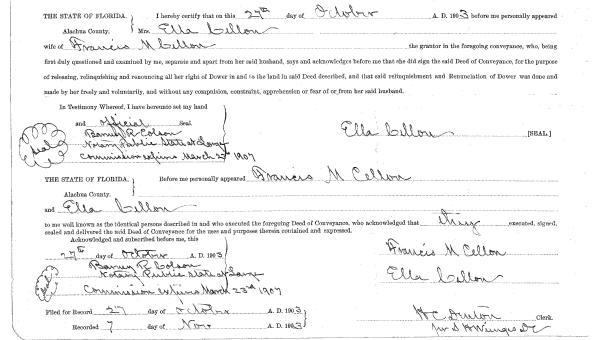 THE STATE OF FLORIDA. } I hereby certify that on this 27th day of October A. D. 1903 before me personally appeared
Alachua County. Mrs. Ella Cellon
wife of Francis M Cellon the grantor in the foregoing conveyance, who, being
first duly questioned and examined by me, separate and apart from her said husband, says and acknowledges before me that she did sign the said Deed of Conveyance, for the purpose
of releasing, relinquishing and renouncing all her right of Dower in and to the land in said Deed described, and that said relinquishment and Renunciation of Dower was done and
made by her freely and voluntarily, and without any compulsion, constraint, apprehension or fear of or from her said husband.
In Testimony Whereof, I have hereunto set my hand
and official Seal
Seal
Barney R Colson
Notary Public State at Large
Commission expires March 23rd 1907
Ella Cellon [SEAL.]
THE STATE OF FLORIDA. } Before me personally appeared Francis M Cellon
Alachua County.
and Ella Cellon
to me well known as the identical persons described in and who executed the foregoing Deed of Conveyance, who acknowledged that they executed, signed,
sealed and delivered the said Deed of Conveyance for the uses and purposes therein contained and expressed.
Acknowledged and subscribed before me, this
27th day of October A. D. 1903
Barney R Colson
Notary Public State at Large
Commission expires March 23rd 1907
Seal
Francis M Cellon
Ella Cellon
Filed for Record 27 day of October A. D. 1903
Recorded 7 day of Nov A. D. 1903
H C Denton Clerk.